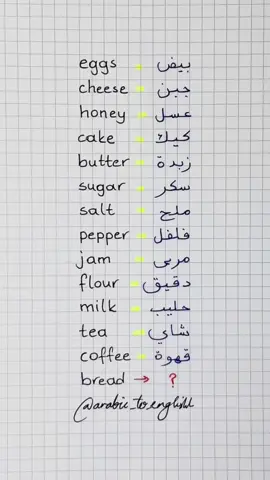 eggs → بيض
cheese → جبن
honey → عسل
cake → كيك
butter → زبدة
sugar → سكر
salt → ملح
pepper → فلفل
jam → مربى
flour → دقيق
milk → حليب
tea → شاي
coffee → قهوة
bread → ?
@arabic_to_english